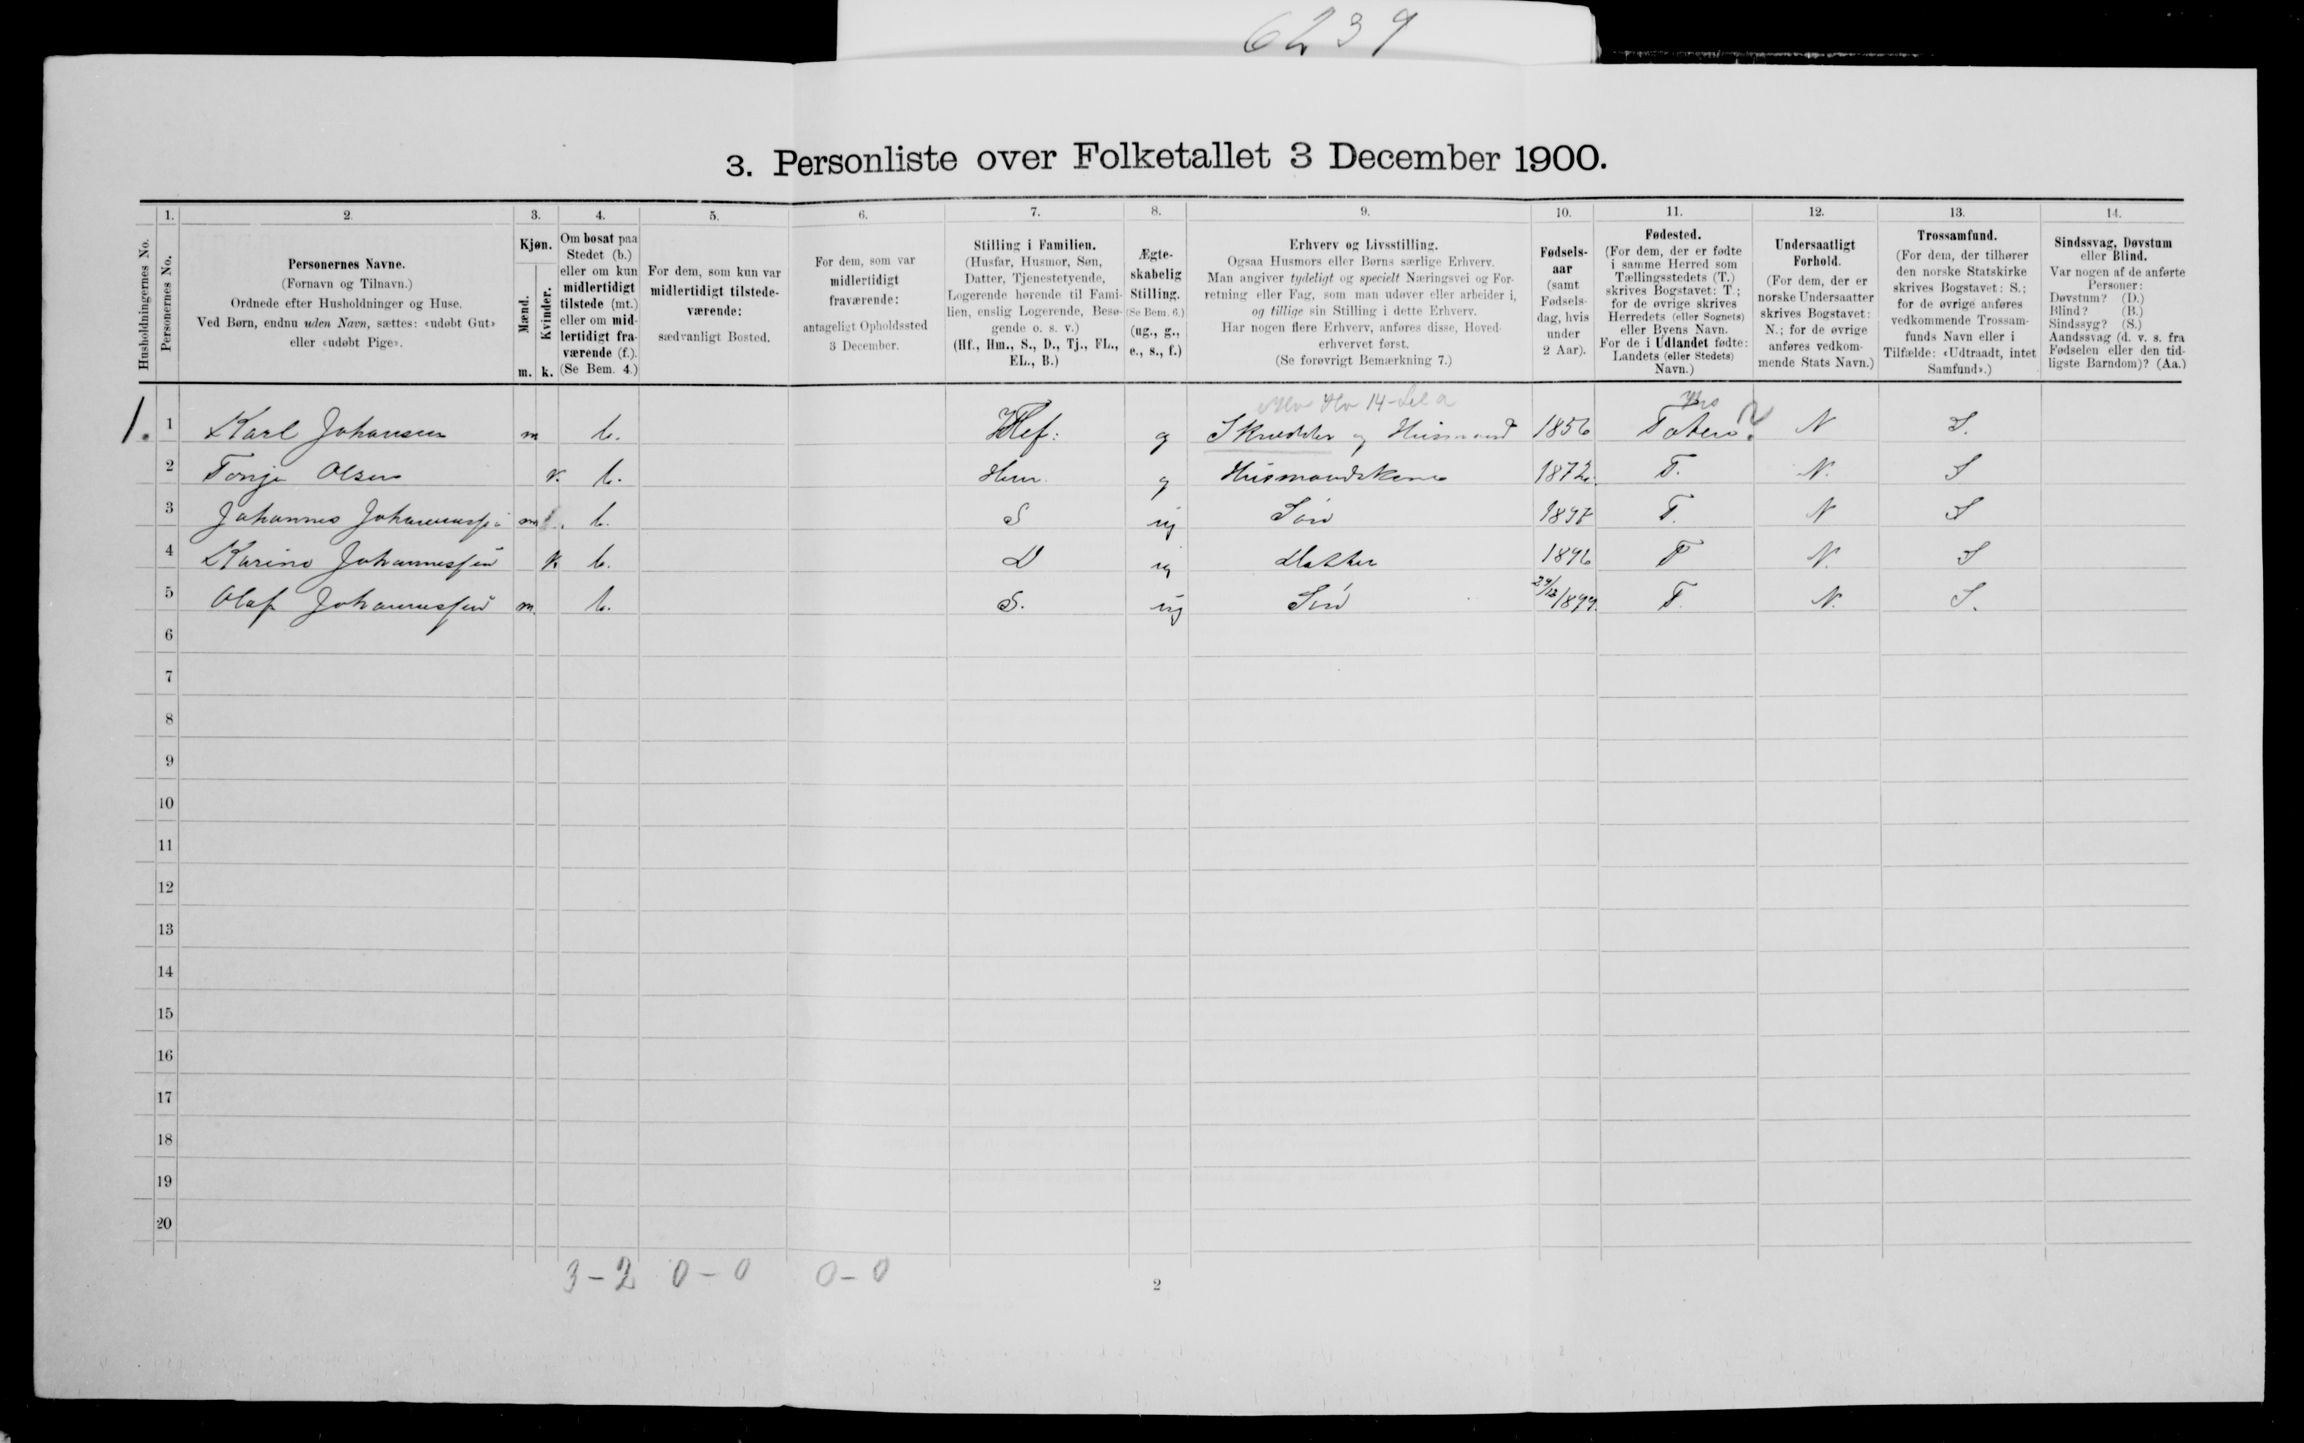 6239
3. Personliste over Folketallet 3 December 1900.
1. 2. 3. 4. 5. 6. 7. 8. 9. 10. 11. 12. 13. 14.
Husholdningernes No.
Personernes No.
Personernes Navne.
(Fornavn og Tilnavn.)
Ordnede efter Husholdninger og Huse.
Ved Børn, endnu uden Navn, sættes: «udøbt Gut»
eller «udøbt Pige».
Kjøn.
Mænd.
Kvinder.
m. k.
Om bosat paa
Stedet (b.)
eller om kun
midlertidigt
tilstede (mt.)
eller om mid-
lertidigt fra-
værende (f.).
(Se Bem. 4.)
For dem, som kun var
midlertidigt tilstede-
værende:
sædvanligt Bosted.
For dem, som var
midlertidigt
fraværende:
antageligt Opholdssted
3 December.
Stilling i Familien.
(Husfar, Husmor, Søn,
Datter, Tjenestetyende,
Logerende hørende til Fami-
lien, enslig Logerende, Besø-
gende o. s. v.)
(Hf., Hm., S., D., Tj., FL.,
EL., B.)
Ægte-
skabelig
Stilling.
(Se Bem. 6.)
(ug., g.,
e., s., f.)
Erhverv og Livsstilling.
Ogsaa Husmors eller Børns særlige Erhverv.
Man angiver tydeligt og specielt Næringsvei og For-
retning eller Fag, som man udøver eller arbeider i,
og tillige sin Stilling i dette Erhverv.
Har nogen flere Erhverv, anføres disse, Hoved-
erhvervet først.
(Se forøvrigt Bemærkning 7.)
Fødsels-
aar
(samt
Fødsels-
dag, hvis
under
2 Aar).
Fødested.
(For dem, der er fødte
i samme Herred som
Tællingsstedets (T.)
skrives Bogstavet: T;
for de øvrige skrives
Herredets (eller Sognets)
eller Byens Navn.
For de i Udlandet fødte:
Landets (eller Stedets)
Navn.)
Undersaatligt
Forhold.
(For dem, der er
norske Undersaatter
skrives Bogstavet:
N.; for de øvrige
anføres vedkom-
mende Stats Navn.)
Trossamfund.
(For dem, der tilhører
den norske Statskirke
skrives Bogstavet: S.;
for de øvrige anføres
vedkommende Trossam-
funds Navn eller i
Tilfælde: «Udtraadt, intet
Samfund».)
Sindssvag, Døvstum
eller Blind.
Var nogen af de anførte
Personer:
Døvstum? (D.)
Blind? (B.)
Sindssyg? (S.)
Aandssvag (d. v. s. fra
Fødselen eller den tid-
ligste Barndom)? (Aa.)
1. 1 Karl Johansen m b. Hf: g Skrædder og Husmand 1856 Toten? N S.
2 Olsen k. b. Hm g Husmandskone 1872 T. N. S
3 Johannes m b. S ug Søn T. N S
4 Karine Johannessen k b. D ug Datter 1896 T N. S
5 Olaf Johannessen m. b. S. ug Søn 1899 T. N. S.
6
7
8
9
10
11
12
13
14
15
16
17
18
19
20
3-2 0-0 0-0
2